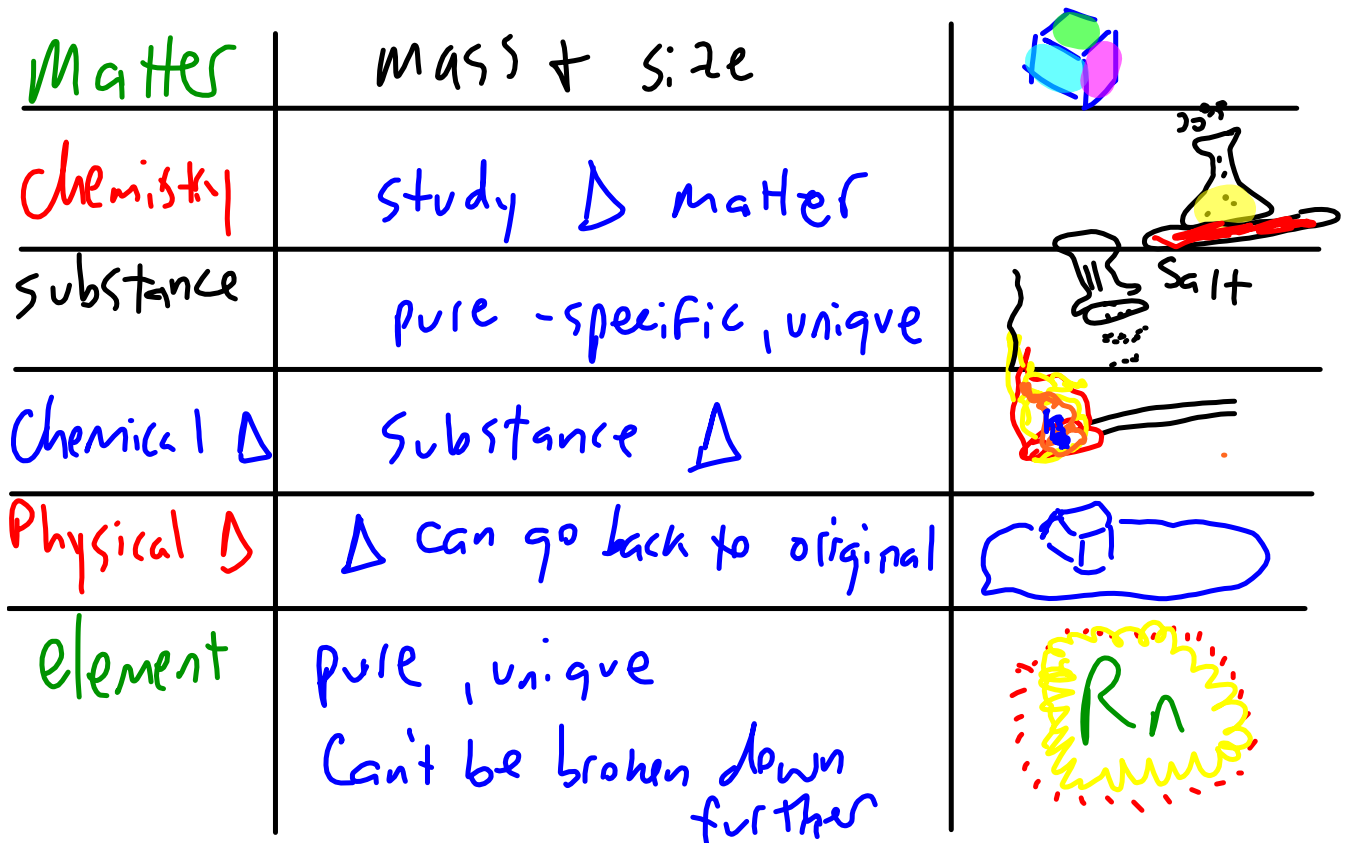 Matter mass + size
Chemistry study Δ matter
substance pure - specific, unique Salt
Chemical Δ substance Δ
Physical Δ Δ can go back to original
element pure, unique Rn
Can't be broken down
further